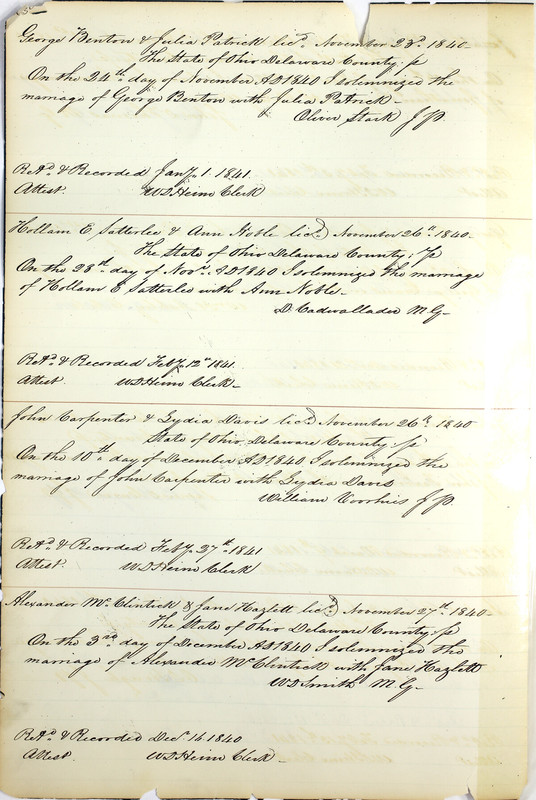 George Benton & Julia Patrick licd. November 23d. 1840
The State of Ohio Delaware County; ss
On the 24th day of November AD 1840 I solemnized the
marriage of George Benton with Julia Patrick
Oliver Stark J.P.
Retd. & Recorded Jany. 1. 1841.
Attest. W D Heim Clerk
Hollam E Satterlee & Ann Noble licd. November 26th. 1840
The State of Ohio Delaware County; ss
On the 28th. day of Novr. AD 1840 I solemnized the marriage
of Hollam E Satterlee with Ann Noble
D. Cadwallader M G
Retd. & Recorded Feby. 12th 1841.
Attest. W D Heim Clerk
John Carpenter & Lydia Davis licd. November 26th. 1840
State of Ohio, Delaware County; ss
On the 10th day of December AD 1840 I solemnized the
marriage of John Carpenter with Lydia Davis
William Voorhies J.P.
Retd. & Recorded Feby. 27th. 1841
Attest. W D Heim Clerk
Alexander McClintick & Jane Hazlett licd. November 27th. 1840
The State of Ohio Delaware County; ss
On the 3rd. day of December AD 1840 I solemnized the
marriage of Alexander McClintick with Jane Hazlett
W D Smith M.G.
Retd. & Recorded Decr. 16. 1840
Attest. W D Heim Clerk